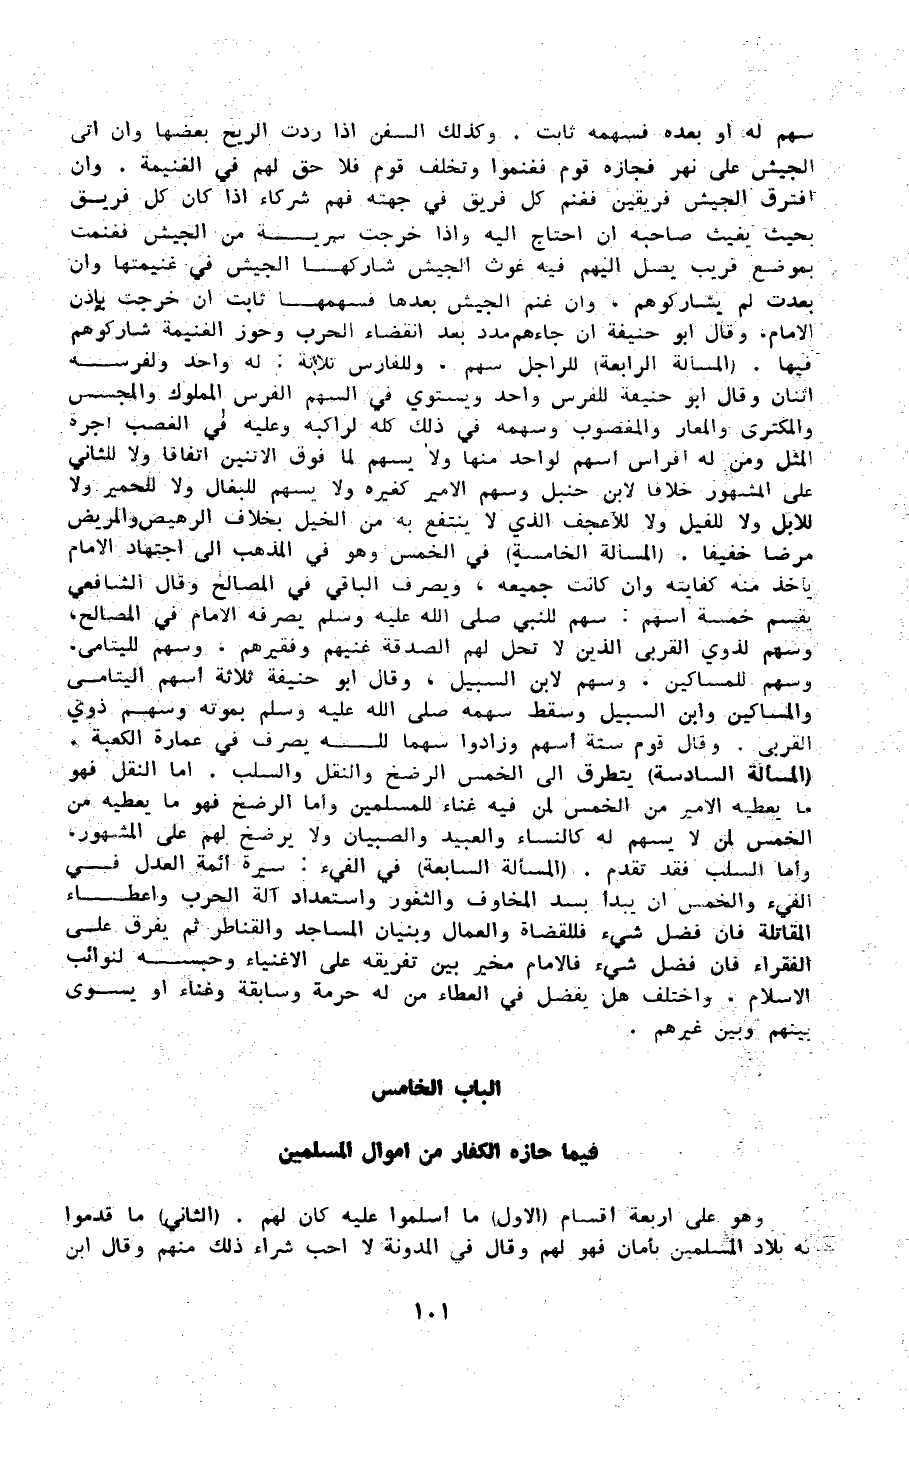 سهم له او بعده فسهمه ثابت . وكذلك السفن اذا ردت الريح بعضها وان اتى
الجيش على نهر فجازه قوم فغنموا وتخلف قوم فلا حق لهم في الغنيمة . وان
افترق الجيش فريقين فغنم كل فريق في جهته فهم شركاء اذا كان كل فريق
بحيث يغيث صاحبه ان احتاج اليه واذا خرجت سرية من الجيش فغنمت
بموضع قريب يصل اليهم فيه غوث الجيش شاركها الجيش في غنيمتها وان
بعدت لم يشاركوهم ، وان غنم الجيش بعدها فسهمها ثابت ان خرجت بإذن
الامام، وقال ابو حنيفة ان جاءهم مدد بعد انقضاء الحرب وحوز الغنيمة شاركوهم
فيها . (المسألة الرابعة) للراجل سهم . وللفارس ثلاثة : له واحد ولفرسه
اثنان وقال ابو حنيفة للفرس واحد ويستوي في السهم الفرس المملوك والمحبس
والمكترى والمعار والمغصوب وسهمه في ذلك كله لراكبه وعليه في الغصب اجرة
المثل ومن له افراس اسهم لواحد منها ولا يسهم لما فوق الاثنين اتفاقا ولا للثاني
على المشهور خلافا لابن حنبل وسهم الامير كغيره ولا يسهم للبغال ولا للحمير ولا
للابل ولا للفيل ولا للأعجف الذي لا ينتفع به من الخيل بخلاف الرهيص والمريض
مرضا خفيفا . (المسألة الخامسة) في الخمس وهو في المذهب الى اجتهاد الامام
يأخذ منه كفايته وان كانت جميعه ، ويصرف الباقي في المصالح وقال الشافعي
يقسم خمسة اسهم : سهم للنبي صلى الله عليه وسلم يصرفه الامام في المصالح،
وسهم لذوي القربى الذين لا تحل لهم الصدقة غنيهم وفقيرهم ، وسهم لليتامى،
وسهم للمساكين . وسهم لابن السبيل ، وقال ابو حنيفة ثلاثة أسهم اليتامى
والمساكين وابن السبيل وسقط سهمه صلى الله عليه وسلم بموته وسهم ذوي
القربى . وقال قوم ستة أسهم وزادوا سهما لله يصرف في عمارة الكعبة .
(المسألة السادسة) يتطرق الى الخمس الرضخ والنفل والسلب . اما النفل فهو
ما يعطيه الامير من الخمس لمن فيه غناء للمسلمين وأما الرضخ فهو ما يعطيه من
الخمس لمن لا يسهم له كالنساء والعبيد والصبيان ولا يرضخ لهم على المشهور،
وأما السلب فقد تقدم . (المسألة السابعة) في الفيء : سيرة أئمة العدل في
الفيء والخمس ان يبدأ بسد المخاوف والثغور واستعداد آلة الحرب واعطاء
المقاتلة فان فضل شيء فللقضاة والعمال وبنيان المساجد والقناطر ثم يفرق على
الفقراء فان فضل شيء فالامام مخير بين تفريقه على الاغنياء وحبسه لنوائب
الاسلام . واختلف هل يفضل في العطاء من له حرمة وسابقة وغناء او يسوى
بينهم وبين غيرهم .
الباب الخامس
فيما حازه الكفار من اموال المسلمين
وهو على اربعة اقسام (الاول) ما أسلموا عليه كان لهم . (الثاني) ما قدموا
به بلاد المسلمين بأمان فهو لهم وقال في المدونة لا احب شراء ذلك منهم وقال ابن
١٠١